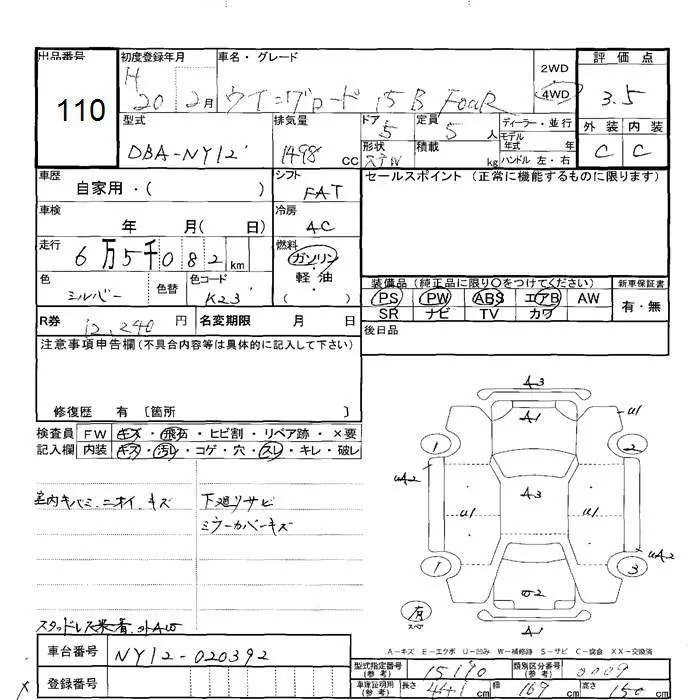 出品番号 110
初度登録年月 H 20 2月
車名・グレード ウイングロード 15B FOUR
2WD
4WD
評価点 3.5
外装 内装
C C
型式 DBA-NY12
排気量 1498 cc
ドア 5
形状 ステW
定員 5人
積載 kg
ディーラー・並行
モデル年式 年
ハンドル 左・右
車歴 自家用・( )
シフト FAT
セールスポイント (正常に機能するものに限ります)
車検 年 月( 日)
冷房 AC
走行 6万5千082 km
燃料 ガソリン・軽油 ( )
色 シルバー 色替
色コード K23
装備品 (純正品に限り〇をつけてください)
新車保証書
PS PW ABS エアB AW
SR ナビ TV カワ
有・無
R券 12,240 円
名変期限 月 日
後日品
注意事項申告欄(不具合内容等は具体的に記入して下さい)
修復歴 有〔箇所 〕
検査員 FW キズ・飛石・ヒビ割・リペア跡・×要
記入欄 内装 キズ・汚レ・コゲ・穴・スレ・キレ・破レ
室内キバミ.ニオイ.キズ
下廻りサビ
ミラーカバーキズ
A3
A1
U1
1
2
UA2
A3
U1
U1
UA2
1
3
有
スペア
A1
スタッドレス装着.
A-キズ E-エクボ U-凹み W-補修跡 S-サビ C-腐食 XX-交換済
車台番号 NY12-020392
登録番号
型式指定番号(参考) 15190
類別区分番号(参考) 0009
車庫証明用(参考) 長さ 441 cm 幅 169 cm 高さ 150 cm